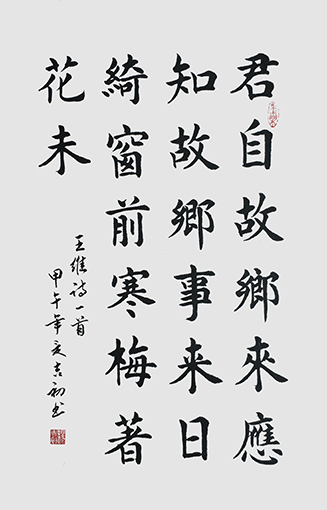 君自故鄉來應
知故鄉事来日
綺窗前寒梅著
花未
王維诗一首
甲午年夏吉初书